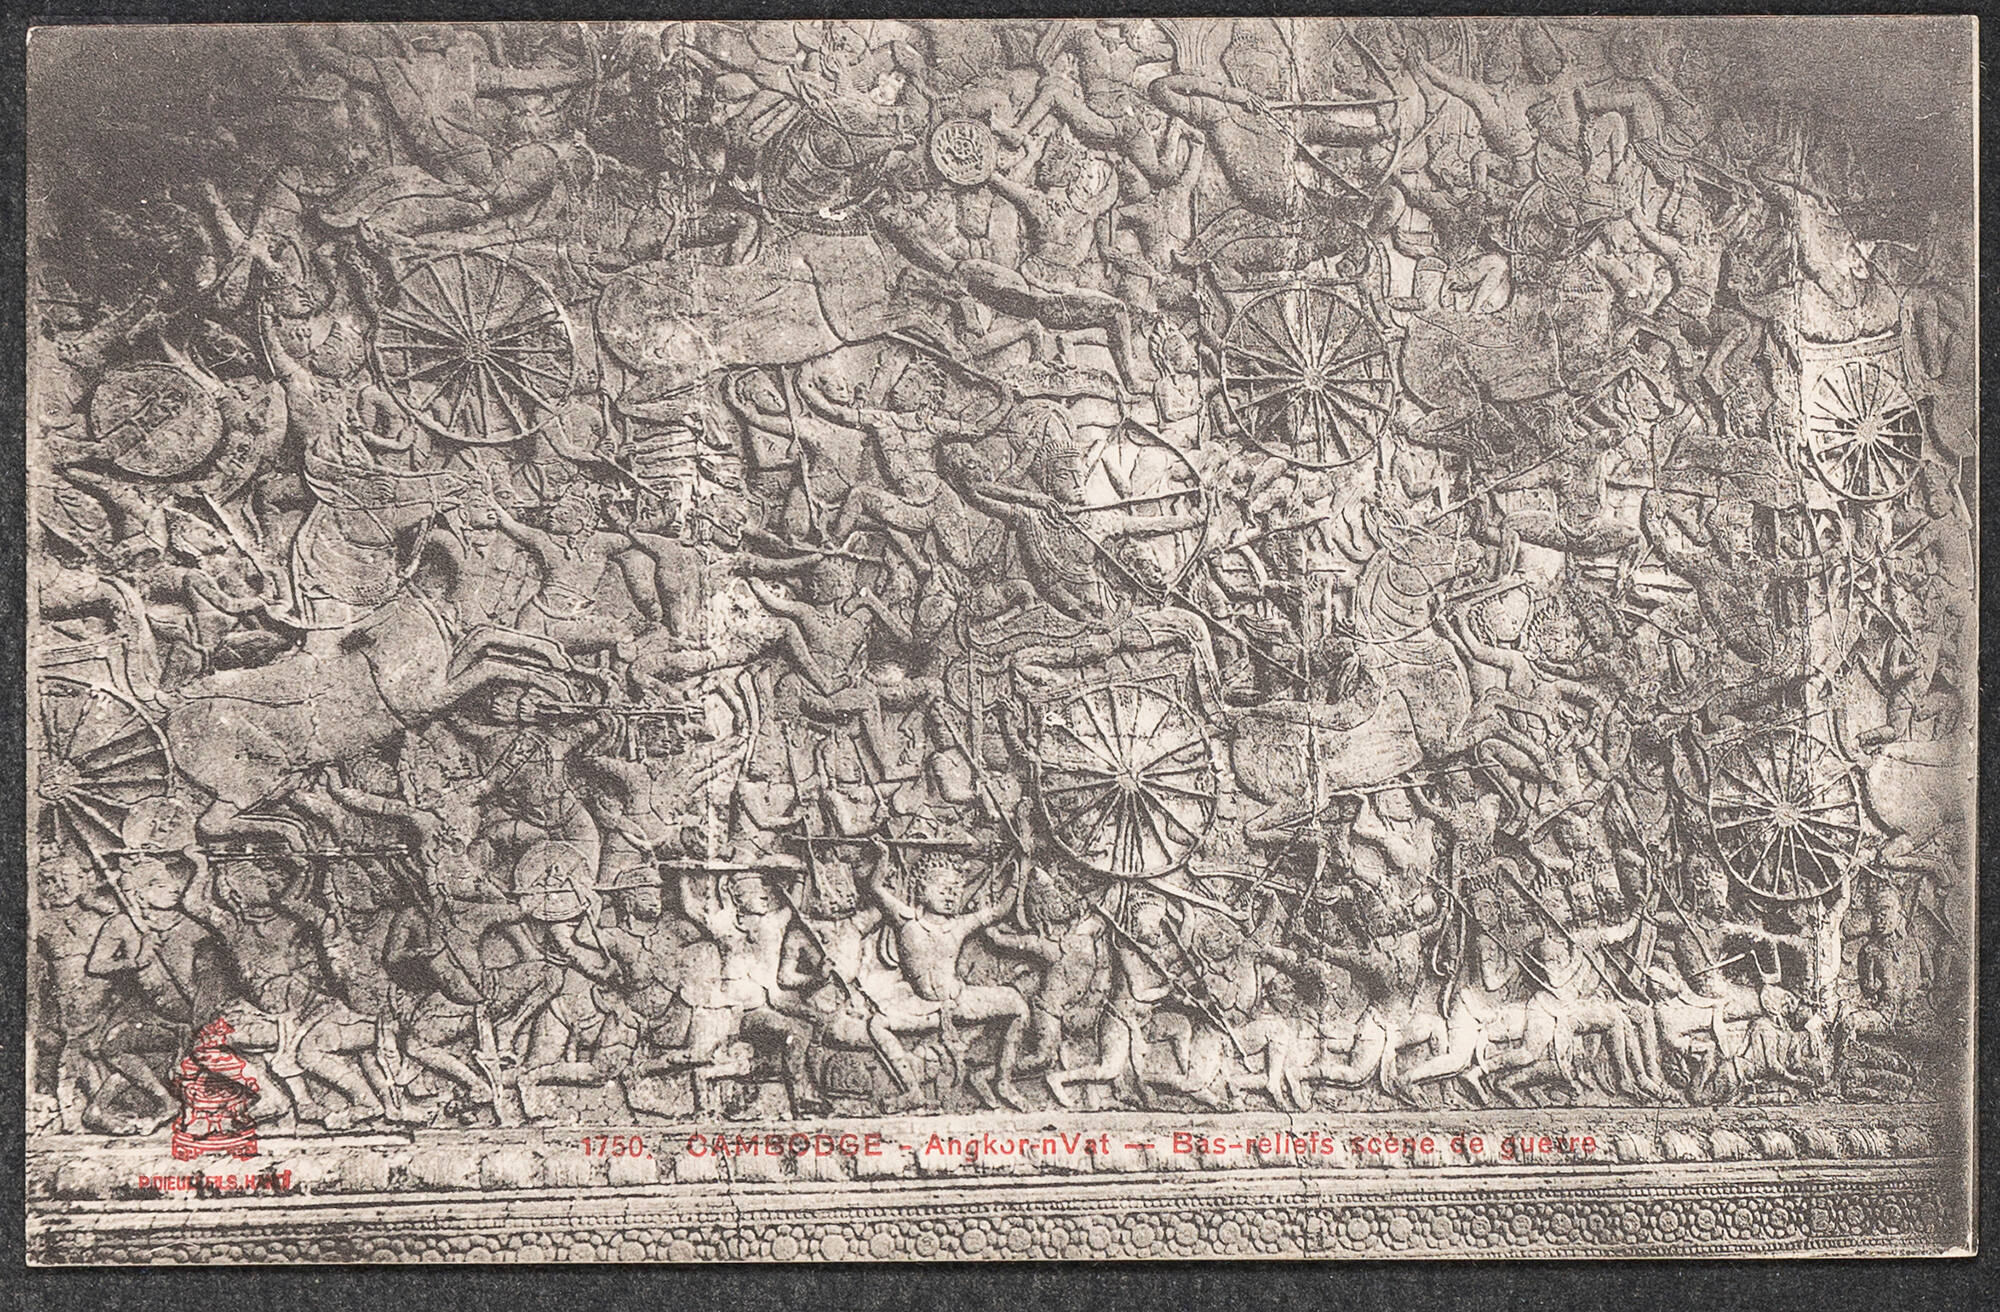 1750. CAMBODGE - Angkor-nVat — Bas-reliefs scène de guerre.
P. DIEULEFILS, HANOÏ